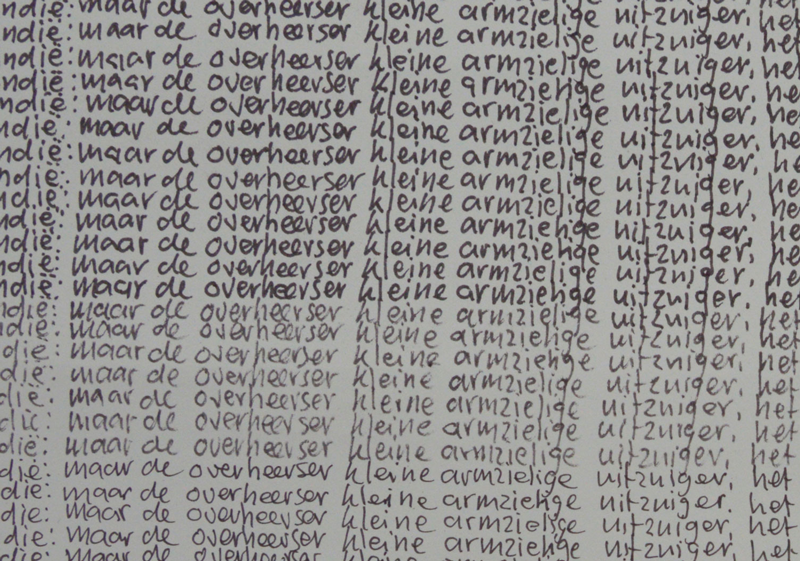 ndië: maar de overheerser kleine armzielige uitzuiger, het
ndië: maar de overheerser kleine armzielige uitzuiger, het
ndië: maar de overheerser kleine armzielige uitzuiger, het
ndië: maar de overheerser kleine armzielige uitzuiger, het
ndië: maar de overheerser kleine armzielige uitzuiger, het
ndië: maar de overheerser kleine armzielige uitzuiger, het
ndië: maar de overheerser kleine armzielige uitzuiger, het
ndië: maar de overheerser kleine armzielige uitzuiger, het
ndië: maar de overheerser kleine armzielige uitzuiger, het
ndië: maar de overheerser kleine armzielige uitzuiger, het
ndië: maar de overheerser kleine armzielige uitzuiger, het
ndië: maar de overheerser kleine armzielige uitzuiger, het
ndië: maar de overheerser kleine armzielige uitzuiger, het
ndië: maar de overheerser kleine armzielige uitzuiger, het
ndië: maar de overheerser kleine armzielige uitzuiger, het
dië: maar de overheerser kleine armzielige uitzuiger, het
dië: maar de overheerser kleine armzielige uitzuiger, het
dië: maar de overheerser kleine armzielige uitzuiger, het
dië: maar de overheerser kleine armzielige uitzuiger, het
dië: maar de overheerser kleine armzielige uitzuiger, het
dië: maar de overheerser kleine armzielige uitzuiger, het
dië: maar de overheerser kleine armzielige uitzuiger. het
dië: maar de overheerser kleine armzielige uitzuiger, het
dië: maar de overheerser kleine armzielige uitzuiger, het
dië: maar de overheerser